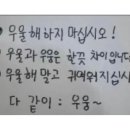 우울해하지 마십시오!
우울과 우웅은 한끗 차이입니다
우울해 말고 귀여워지십시
다 같이 : 우웅~